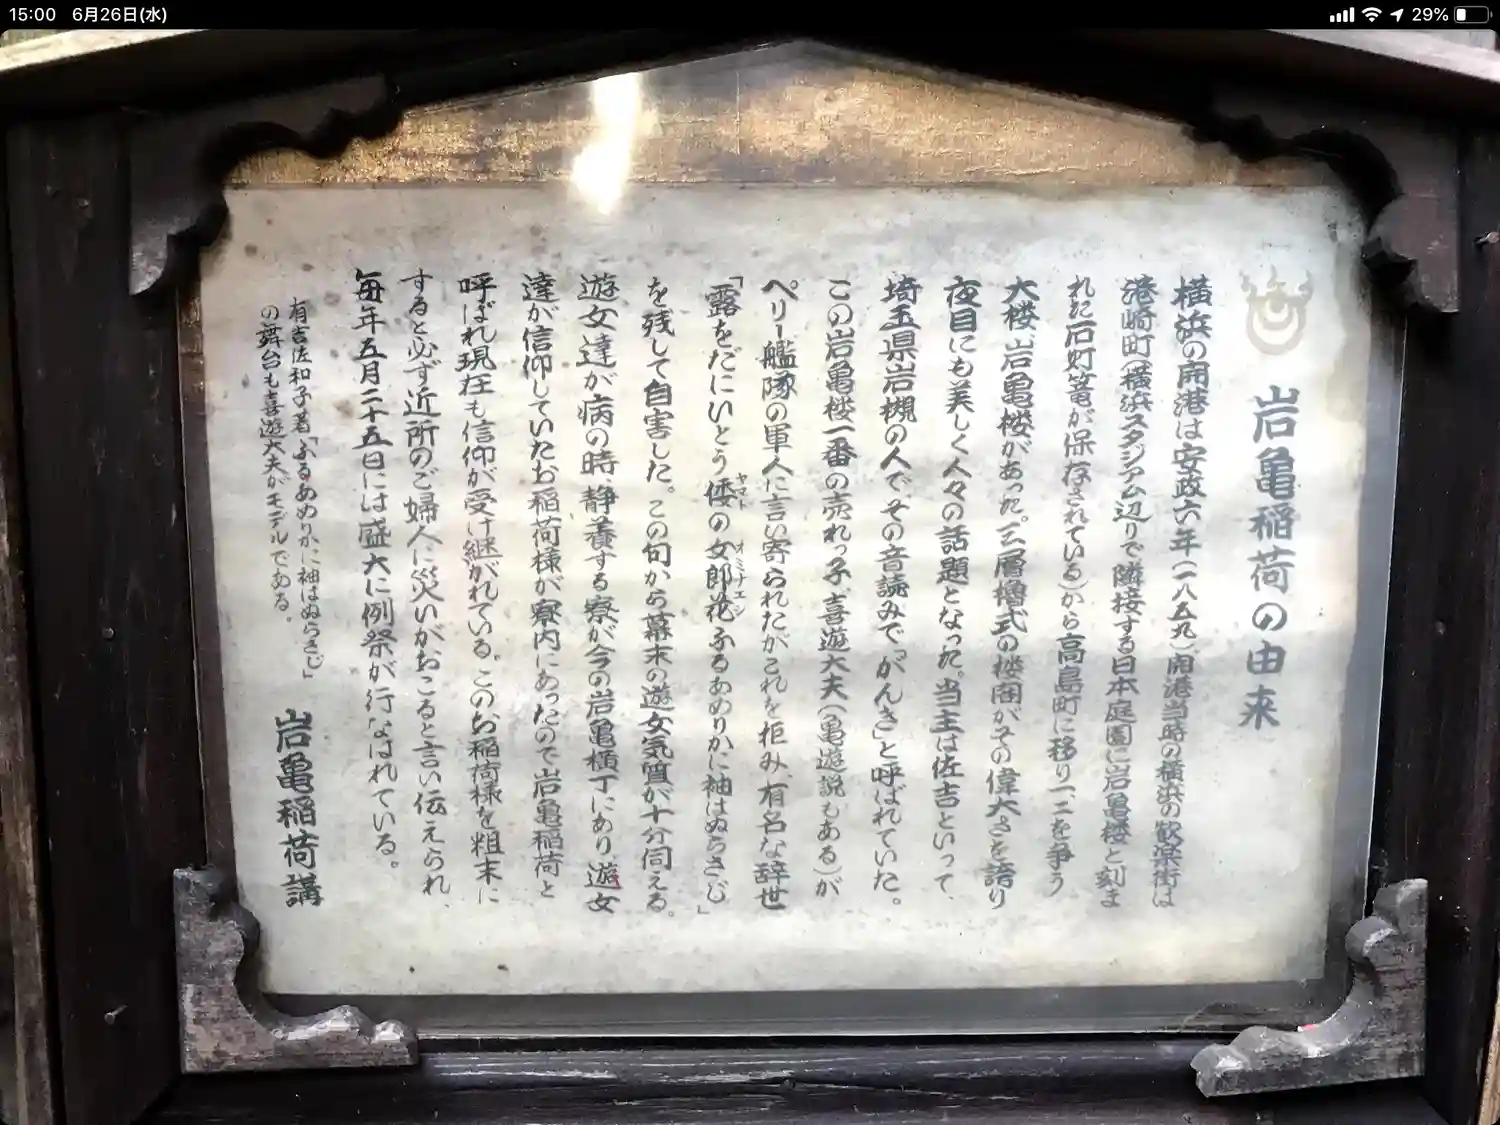 15:00 6月26日(水)
29%
岩亀稲荷の由来
横浜の開港は安政六年(一八五九)開港当時の横浜の歓楽街は
港崎町(横浜スタジアム辺りで隣接する日本庭園に岩亀楼と刻ま
れた石灯篭が保存されている)から高島町に移り一二を争う
大楼岩亀楼があった。三層櫓式の楼閣がその偉大さを誇り
夜目にも美しく人々の話題となった。当主は佐吉といって、
埼玉県岩槻の人で、その音読みで〝がんき〟と呼ばれていた。
この岩亀楼一番の売れっ子〝喜遊大夫(亀遊説もある)が
ペリー艦隊の軍人に言い寄られたがこれを拒み、有名な辞世
「露をだにいとう倭の女郎花ふるあめりかに袖はぬらさじ」
ヤマト
オミナエシ
を残して自害した。この句から幕末の遊女気質が十分伺える。
遊女達が病の時、静養する寮が今の岩亀横丁にあり遊女
達が信仰していたお稲荷様が寮内にあったので岩亀稲荷と
呼ばれ現在も信仰が受け継がれている。このお稲荷様を粗末に
すると必ず近所のご婦人に災いがおこると言い伝えられ、
毎年五月二十五日には盛大に例祭が行なはれている。
有吉佐和子著「ふるあめりかに袖はぬらさじ」
の舞台も喜遊大夫がモデルである。
岩亀稲荷講